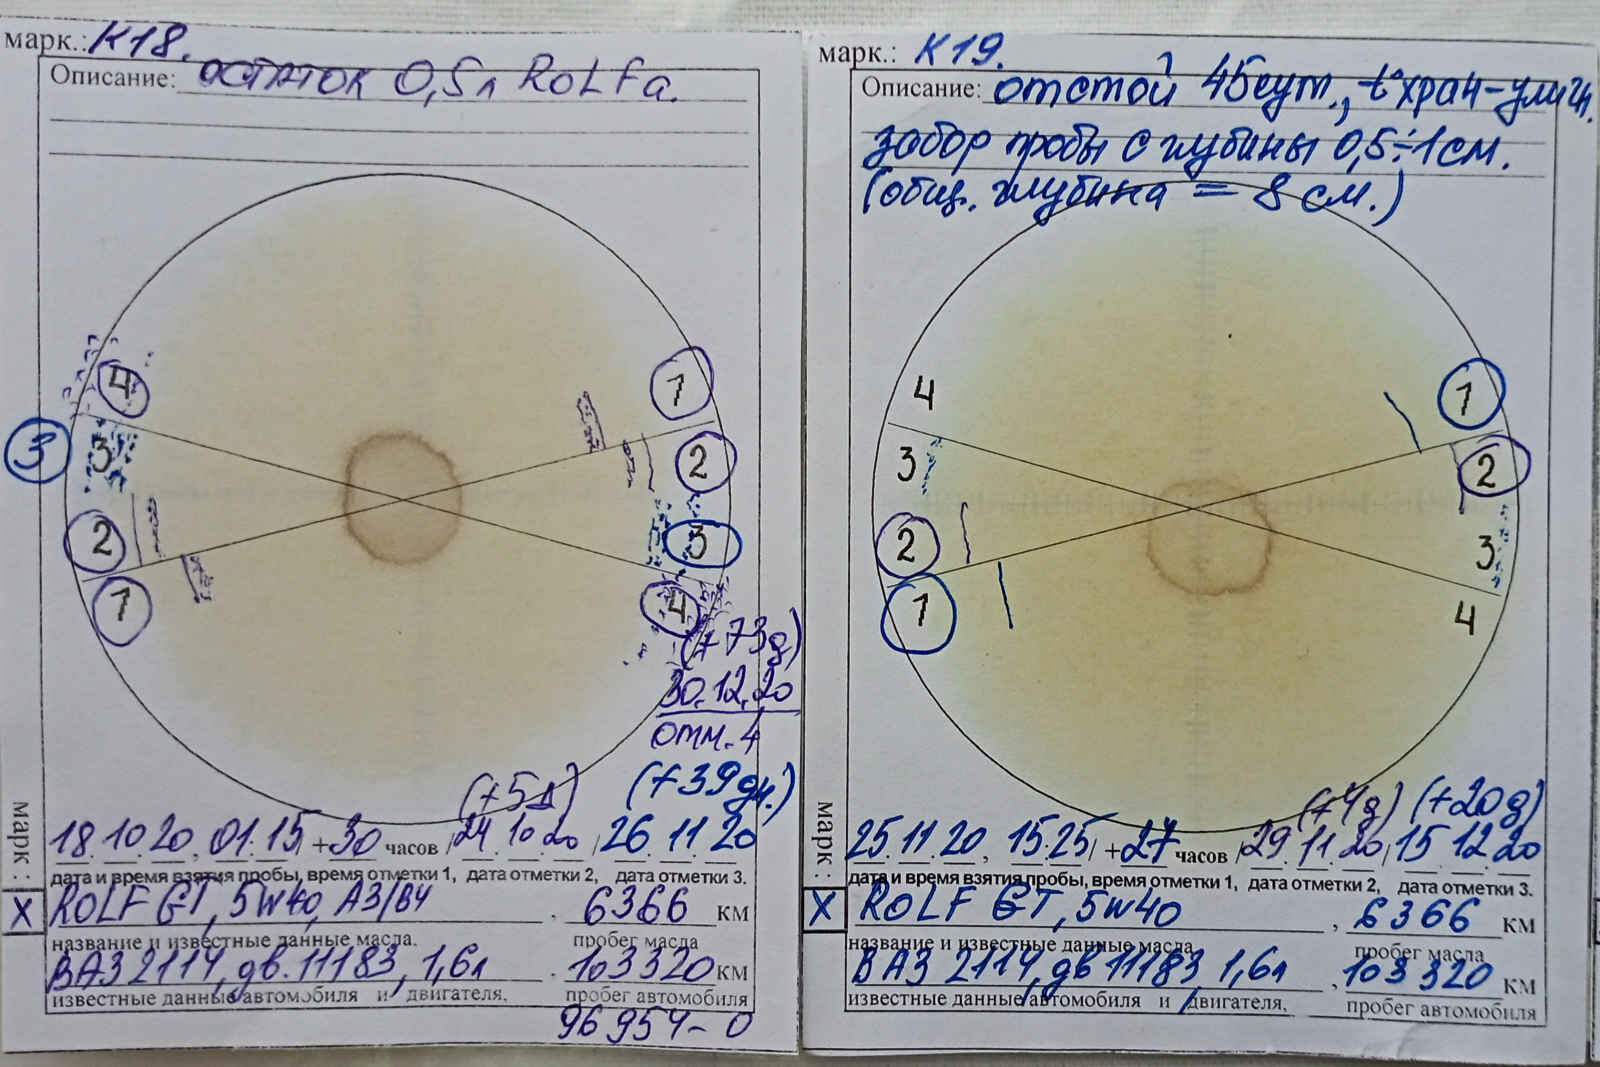 марк.: К18.
Описание: остаток 0,5л RoLFa.
4
1
3
3
2
2
3
1
4
(+73д)
30.12.20
отм. 4
(+5д) (+39дн.)
18.10.20, 01.15, +30 часов, 24.10.20, 26.11.20
дата и время взятия пробы, время отметки 1, дата отметки 2, дата отметки 3.
марк:
X
ROLF GT, 5W40, A3/B4, 6366 КМ
название и известные данные масла. пробег масла
ВАЗ 2114, дв. 11183, 1,6л, 103320 КМ
известные данные автомобиля и двигателя, пробег автомобиля
96954-0
марк.: К19.
Описание: отстой 45сут., t°хран-улич.
забор пробы с глубины 0,5÷1см.
(общ. глубина = 8 см.)
4
1
3
2
2
3
1
4
(+4д) (+20д)
25.11.20, 15.25, +27 часов, 29.11.20, 15.12.20
дата и время взятия пробы, время отметки 1, дата отметки 2, дата отметки 3.
марк:
X
ROLF GT, 5W40, 6366 КМ
название и известные данные масла. пробег масла
ВАЗ 2114, дв 11183 1,6л, 103320 КМ
известные данные автомобиля и двигателя, пробег автомобиля